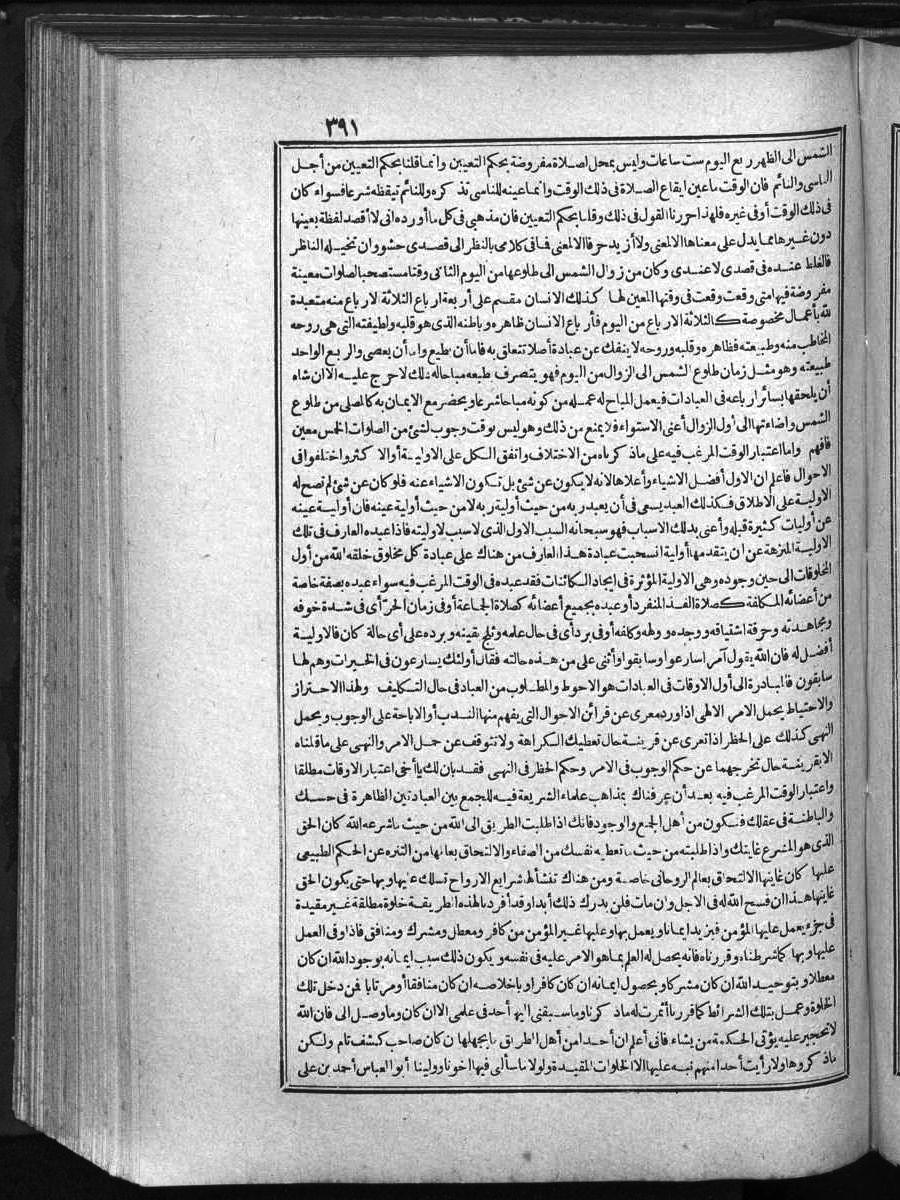 ٣٩١
الشمس الى الظهر ربع اليوم ست ساعات وليس بمحل لصلاة مفروضة بحكم التعيين وانما قلنا بحكم التعيين من أجل
الناسى والنائم فان الوقت ما عين ايقاع الصلاة فى ذلك الوقت وانما عينه للناسى تذكره وللنائم تيقظه شرعا فسواء كان
فى ذلك الوقت أو فى غيره فلهذا حررنا القول فى ذلك وقلنا بحكم التعيين فان مذهبى فى كل ما أورده انى لا أقصد لفظة بعينها
دون غيرها مما يدل على معناها الا لمعنى ولا أزيد حرفا الا لمعنى فما فى كلامى بالنظر الى قصدى حشو وان تخيله الناظر
فالغلط عنده فى قصدى لا عندى وكان من زوال الشمس الى طلوعها من اليوم الثانى وقتا مستصحبا لصلوات معينة
مفروضة فيها متى وقعت وقعت فى وقتها المعين لها كذلك الانسان مقسم على أربعة ارباع الثلاثة الارباع منه متعبدة
لله بأعمال مخصوصة كالثلاثة الارباع من اليوم فأرباع الانسان ظاهره وباطنه الذى هو قلبه ولطيفته التى هى روحه
المخاطب منه وطبيعته فظاهره وقلبه وروحه لا ينفك عن عبادة أصلا تتعلق به فاما أن يطيع واما أن يعصى والربع الواحد
طبيعته وهو مثل زمان طلوع الشمس الى الزوال من اليوم فهو يتصرف بطبعه مباحا له ذلك لا حرج عليه الا ان شاء
أن يلحقها بسائر ارباعه فى العبادات فيعمل المباح له عمله من كونه مباحا شرعا ويحضر مع الايمان به كالمصلى من طلوع
الشمس واضاءتها الى أول الزوال أعنى الاستواء فلا يمنع من ذلك وهو ليس بوقت وجوب لشئ من الصلوات الخمس معين
فافهم واما اعتبار الوقت المرغب فيه على ما ذكرناه من الاختلاف واتفق الكل على الاولية أو الاكثر واختلفوا فى
الاحوال فاعلم ان الاول أفضل الاشياء وأعلاها لانه لا يكون عن شئ بل تكون الاشياء عنه فلو كان عن شئ لم تصح له
الاولية على الاطلاق فكذلك العبد يسعى فى أن يعبد ربه من حيث أولية ربه لا من حيث أولية عينه فان أولية عينه
عن أوليات كثيرة قبله وأعنى بذلك الاسباب فهو سبحانه السبب الاول الذى لا سبب لاوليته فاذا عبده العارف فى تلك
الاولية المنزهة عن ان يتقدمها أولية انسحبت عبادة هذا العارف من هناك على عبادة كل مخلوق خلقه الله من أول
المخلوقات الى حين وجوده وهى الاولية المؤثرة فى ايجاد الكائنات فقد عبده فى الوقت المرغب فيه سواء عبده بصفة خاصة
من أعضائه المكلفة كصلاة الفذ المنفرد أو عبده بجميع أعضائه كصلاة الجماعة أو فى زمان الحر أى فى شدة خوفه
ومجاهدته وحرقة اشتياقه ووجده ووله وكلفه أو فى برد أى فى حال علمه وثلج يقينه وبرده على أى حالة كان فالاولية
أفضل له فان الله يقول آمرا سارعوا وسابقوا وأثنى على من هذه حالته فقال أولئك يسارعون فى الخيرات وهم لها
سابقون فالمبادرة الى أول الاوقات فى العبادات هو الاحوط والمطلوب من العباد فى حال التكليف ولهذا الاحتراز
والاحتياط يحمل الامر الالهى اذا ورد معرى عن قرائن الاحوال التى يفهم منها الندب أو الاباحة على الوجوب ويحمل
النهى كذلك على الحظر اذا تعرى عن قرينة حال تعطيك الكراهة ولا تتوقف عن حمل الامر والنهى على ما قلناه
الا بقرينة حال تخرجهما عن حكم الوجوب فى الامر وحكم الحظر فى النهى فقد بان لك يا أخى اعتبار الاوقات مطلقا
واعتبار الوقت المرغب فيه بعد أن عرفناك بمذاهب علماء الشريعة فيه للجمع بين العبادتين الظاهرة فى حسك
والباطنة فى عقلك فتكون من أهل الجمع والوجود فانك اذا طلبت الطريق الى الله من حيث ما شرعه الله كان الحق
الذى هو المشرع غايتك واذا طلبته من حيث ما تعطيه نفسك من الصفاء والالتحاق بعالمها من التنزه عن الحكم الطبيعى
عليها كان غايتها الالتحاق بعالم الروحانى خاصة ومن هناك تنشأ لها شرايع الارواح تسلك عليها وبها حتى يكون الحق
غايتها هذا ان فسح الله له فى الاجل وان مات فلن يدرك ذلك أبدا وقد أفردنا لهذه الطريقة خلوة مطلقة غير مقيدة
فى جزء يعمل عليها المؤمن فيزيد ايمانا ويعمل بها وعليها غير المؤمن من كافر ومعطل ومشرك ومنافق فاذا وفى العمل
عليها وبها كما شرطناه وقررناه فانه يحصل له العلم بما هو الامر عليه فى نفسه ويكون ذلك سبب ايمانه بوجود الله ان كان
معطلا وبتوحيد الله ان كان مشركا وبحصول ايمانه ان كان كافرا وباخلاصه ان كان منافقا أو مرتابا فمن دخل تلك
الخلوة وعمل بتلك الشرائط كما قررنا أثمرت له ما ذكرنا وما سبقنى اليها أحد فى علمى الا ان كان وما وصل الى فان الله
لا تحجير عليه يؤتى الحكمة من يشاء فانى أعلم ان أحدا من أهل الطريق ما يجهلها ان كان صاحب كشف تام ولكن
ما ذكروها ولا رأيت أحدا منهم نبه عليها الا الخلوات المقيدة ولولا ما سألنى فيها اخونا وولينا أبو العباس أحمد بن على